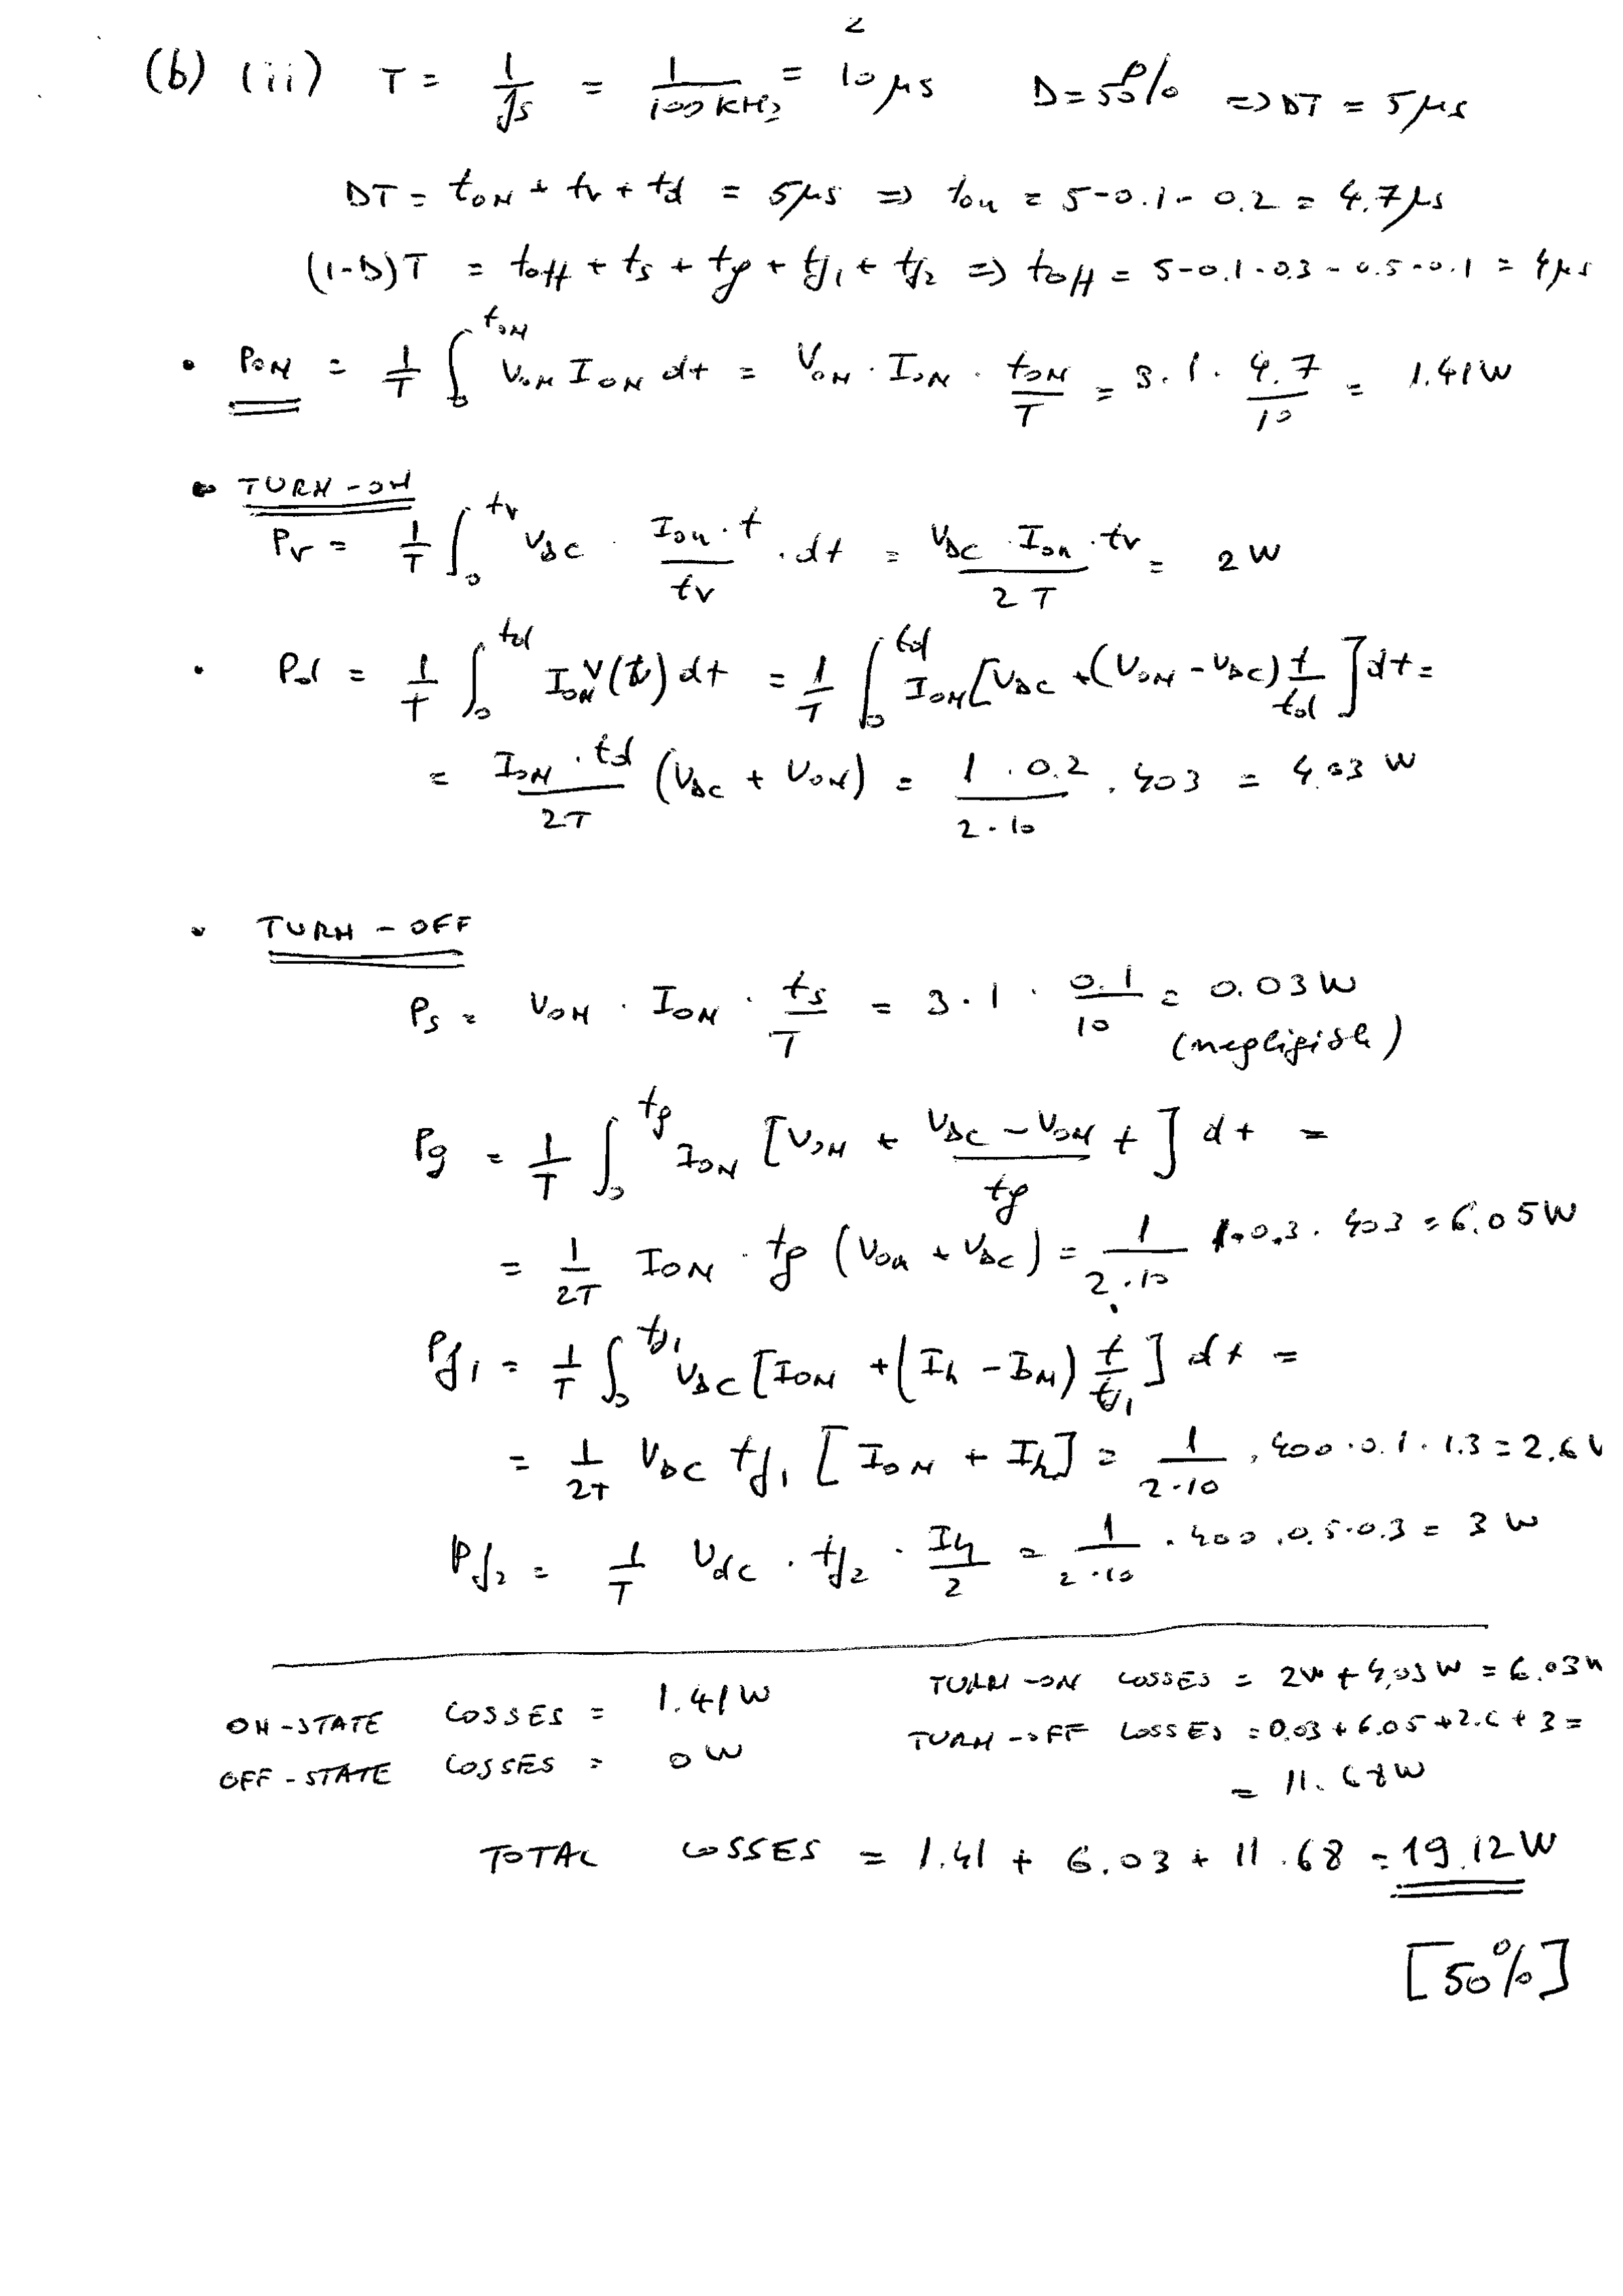 2
(b) (ii) T = 1/fs = 1/100 KHz = 10 μs D = 50% => DT = 5 μs
DT = tON + tr + td = 5 μs => ton = 5 - 0.1 - 0.2 = 4.7 μs
(1-D)T = toff + ts + tg + tf1 + tf2 => toff = 5 - 0.1 - 0.3 - 0.5 - 0.1 = 4 μs
• PON = 1/T ∫0^tON VON ION dt = VON · ION · tON/T = 3 · 1 · 4.7/10 = 1.41 W
• TURN-ON
Pr = 1/T ∫0^tr VDC · Ion · t/tr · dt = VDC · Ion · tr/2T = 2 W
• Pd = 1/T ∫0^td ION V(t) dt = 1/T ∫0^td ION [VDC + (VON - VDC) t/td] dt =
= ION · td/2T (VDC + VON) = 1 · 0.2/2 · 10 · 403 = 4.03 W
• TURN-OFF
Ps = VON · ION · ts/T = 3 · 1 · 0.1/10 = 0.03 W
(negligible)
Pg = 1/T ∫0^tg ION [VON + VDC - VON/tg t] dt =
= 1/2T ION · tg (VON + VDC) = 1/2 · 10 1 · 0.3 · 403 = 6.05 W
Pf1 = 1/T ∫0^tf1 VDC [ION + (Ih - ION) t/tf1] dt =
= 1/2T VDC tf1 [ION + Ih] = 1/2 · 10 · 400 · 0.1 · 1.3 = 2.6 W
Pf2 = 1/T Vdc · tf2 · Ih/2 = 1/2 · 10 · 400 · 0.5 · 0.3 = 3 W
ON-STATE LOSSES = 1.41 W TURN-ON LOSSES = 2W + 4.03 W = 6.03 W
OFF-STATE LOSSES = 0 W TURN-OFF LOSSES = 0.03 + 6.05 + 2.6 + 3 =
= 11.68 W
TOTAL LOSSES = 1.41 + 6.03 + 11.68 = 19.12 W
[50%]